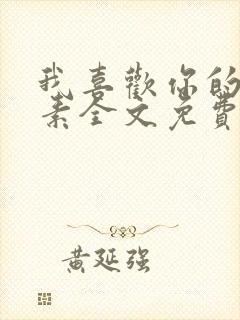 我喜歡你的
素全文免費
黄延强